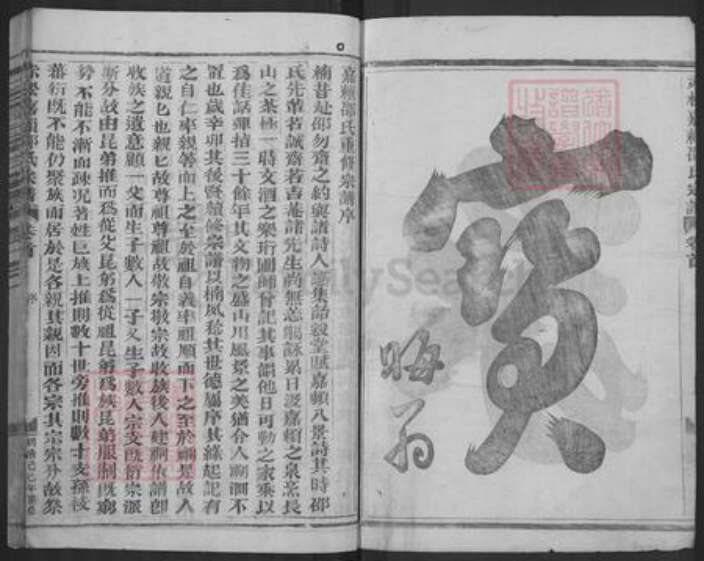 寶
晦翁
嘉賴邵氏重修宗譜序
楠昔赴邵勿齋之約與諸詩人集詒穀堂賦嘉賴八景詩其時邵
氏先輩若誠齋若吉菴諸先生尚無恙觴詠累日汲嘉賴之泉烹長
山之茶極一時文酒之樂珩圃師曾記其事韻他日可勒之家乘以
爲佳話彈指三十餘年其文物之盛山川風景之美猶令人 洄不
置也歲辛卯其後賢續修宗譜以楠夙稔其世德屬序其緣起記有
之自仁率親等而上之至於祖自義率祖順而下之至於禰是故人
道親親也親親故尊祖尊祖故敬宗敬宗故收族後人建祠依譜卽
收族之遺意顧一父而生子數人一子又生子數人宗支旣衍宗派
漸分故由昆弟推而爲從父昆弟爲從祖昆弟爲族昆弟服制旣窮
勢不能不漸而疎况著姓巨族上推則數十世旁推則數十支孫枝
蕃衍旣不能仍聚族而居於是各親其親因而各宗其宗宗分故祭
嘉賴邵氏宗譜 卷首 序
FamilySearch